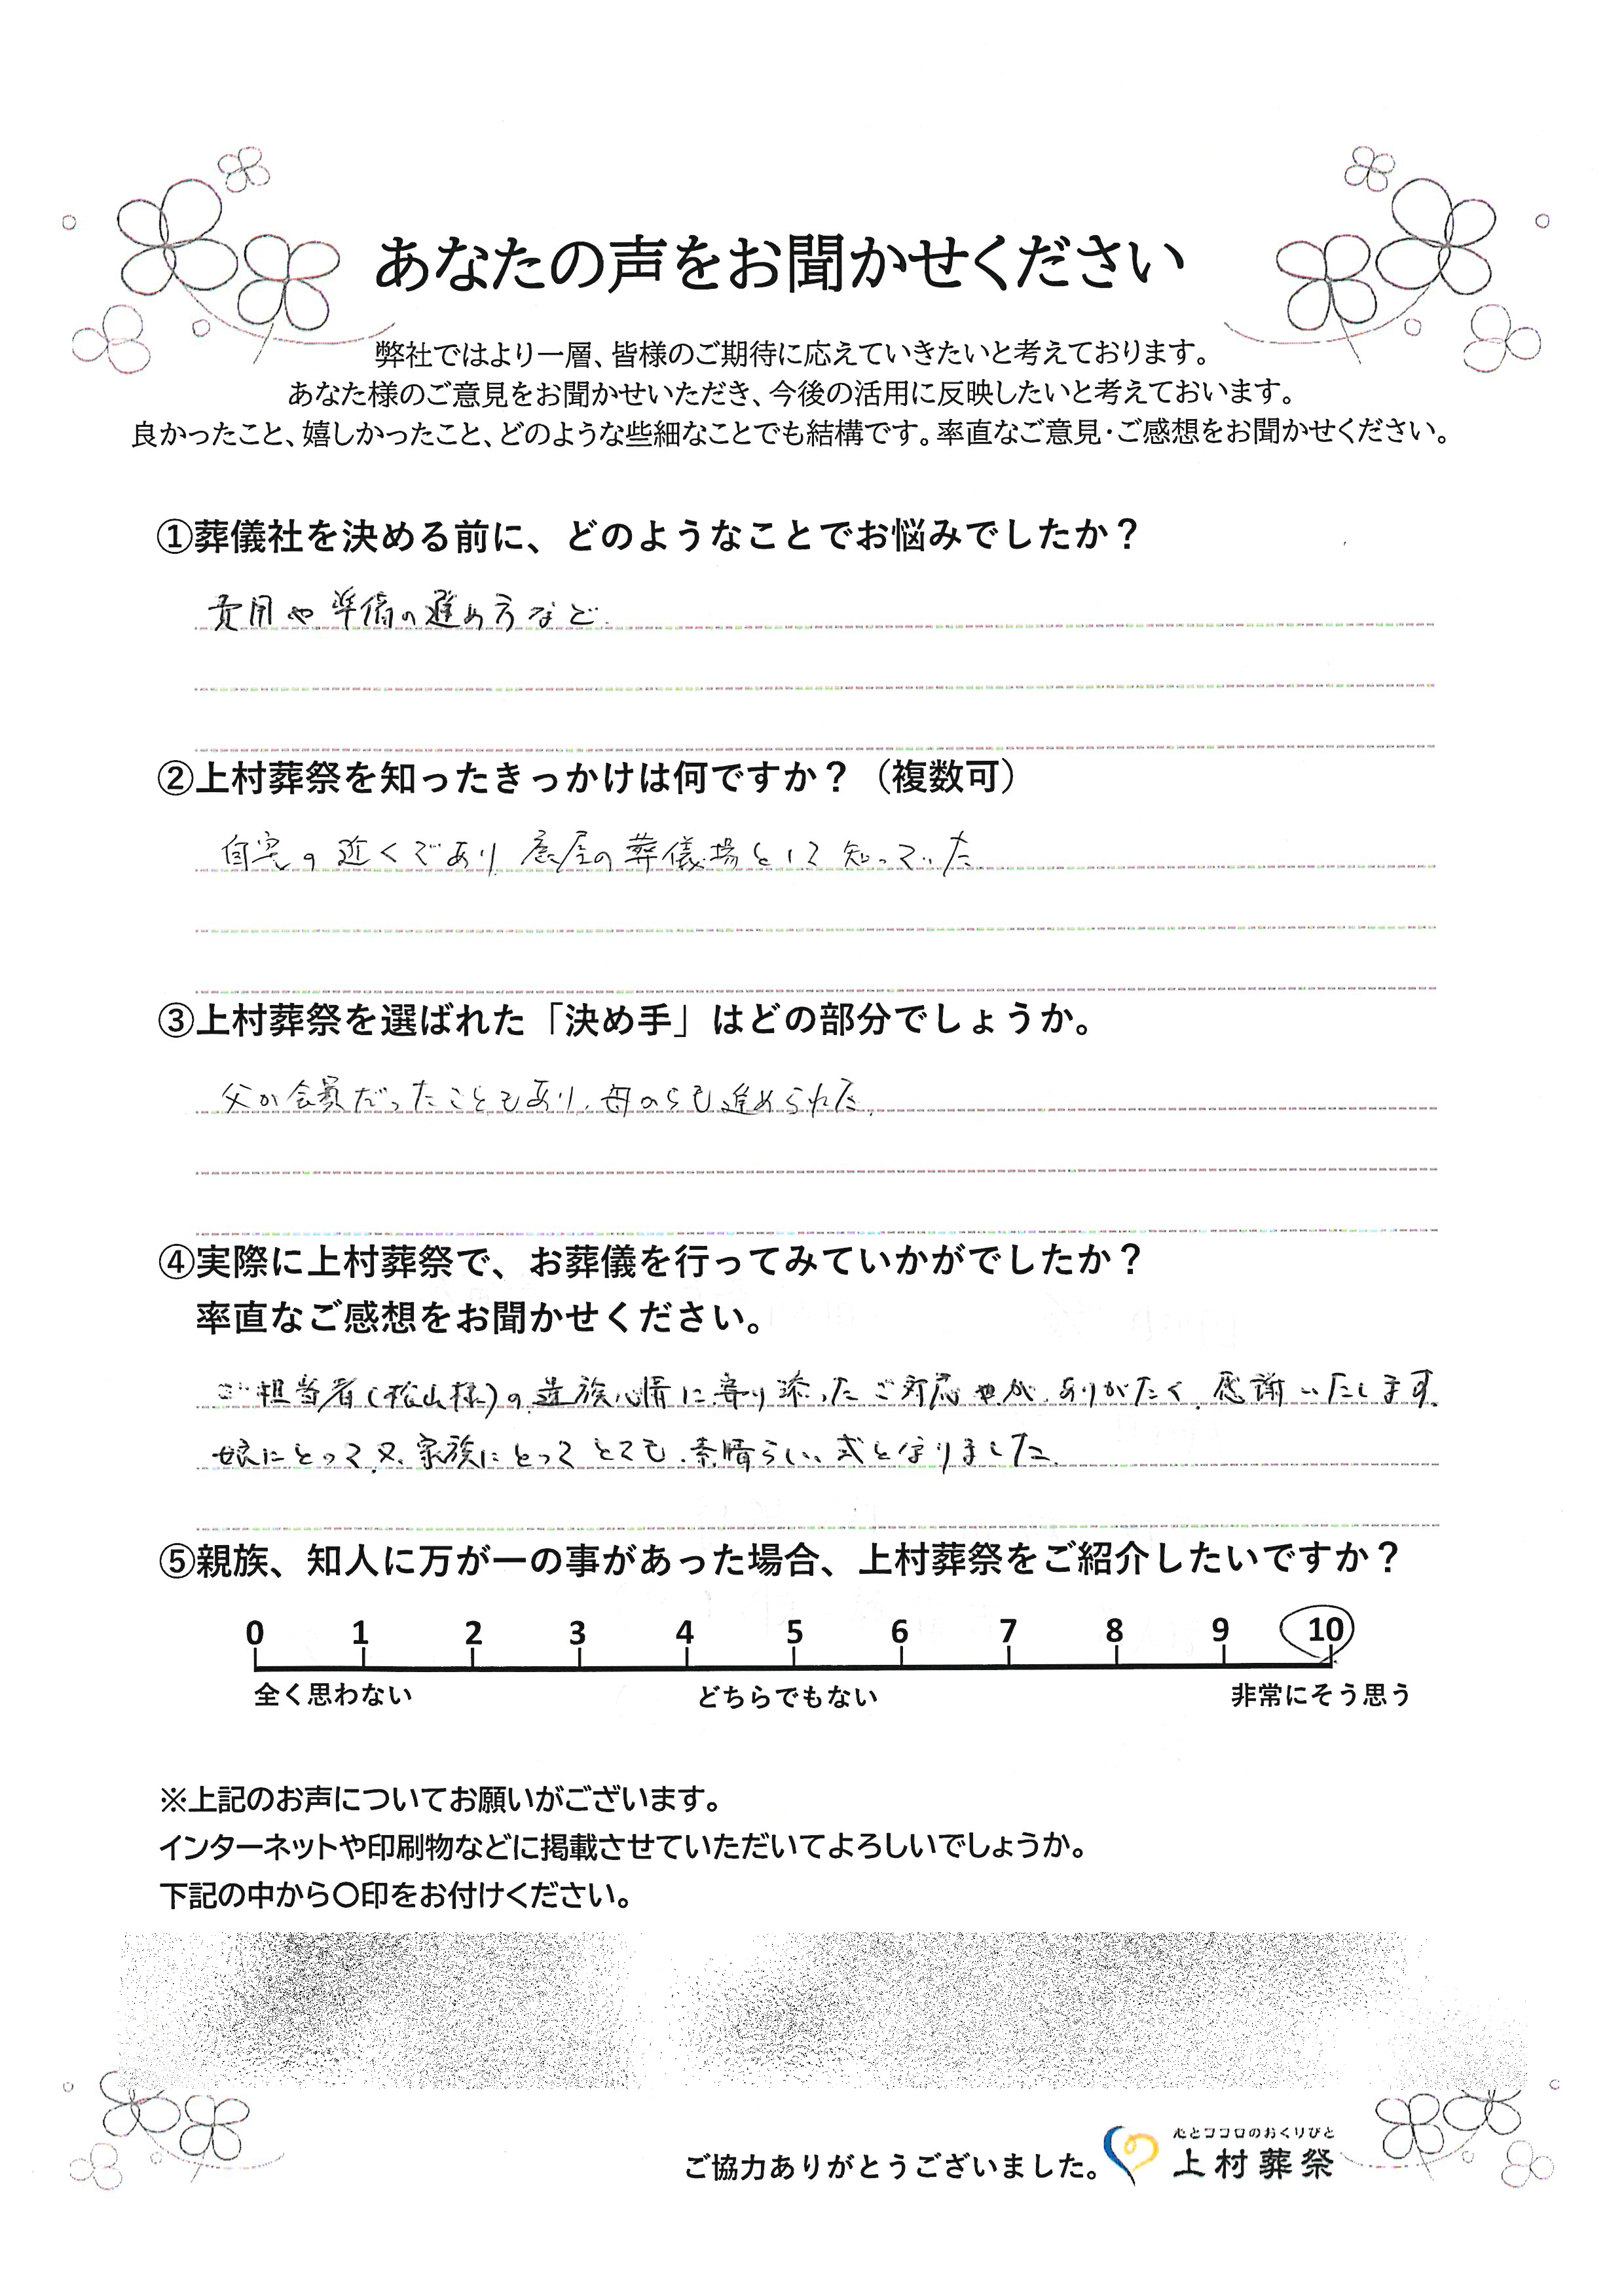 あなたの声をお聞かせください
弊社ではより一層、皆様のご期待に応えていきたいと考えております。
あなた様のご意見をお聞かせいただき、今後の活用に反映したいと考えておいます。
良かったこと、嬉しかったこと、どのような些細なことでも結構です。率直なご意見・ご感想をお聞かせください。
①葬儀社を決める前に、どのようなことでお悩みでしたか？
費用や準備の進め方など.
②上村葬祭を知ったきっかけは何ですか？（複数可）
自宅の近くであり の葬儀場として知っていた
③上村葬祭を選ばれた「決め手」はどの部分でしょうか。
父が会員だったこともあり、母からも進められた.
④実際に上村葬祭で、お葬儀を行ってみていかがでしたか？
率直なご感想をお聞かせください。
ご担当者(松山様)の遺族心情に寄り添ったご対応 ありがたく、感謝いたします。
娘にとって又、家族にとってとても素晴らしい式となりました.
⑤親族、知人に万が一の事があった場合、上村葬祭をご紹介したいですか？
0 1 2 3 4 5 6 7 8 9 10
全く思わない どちらでもない 非常にそう思う
※上記のお声についてお願いがございます。
インターネットや印刷物などに掲載させていただいてよろしいでしょうか。
下記の中から〇印をお付けください。
心とココロのおくりびと
ご協力ありがとうございました。 上村葬祭